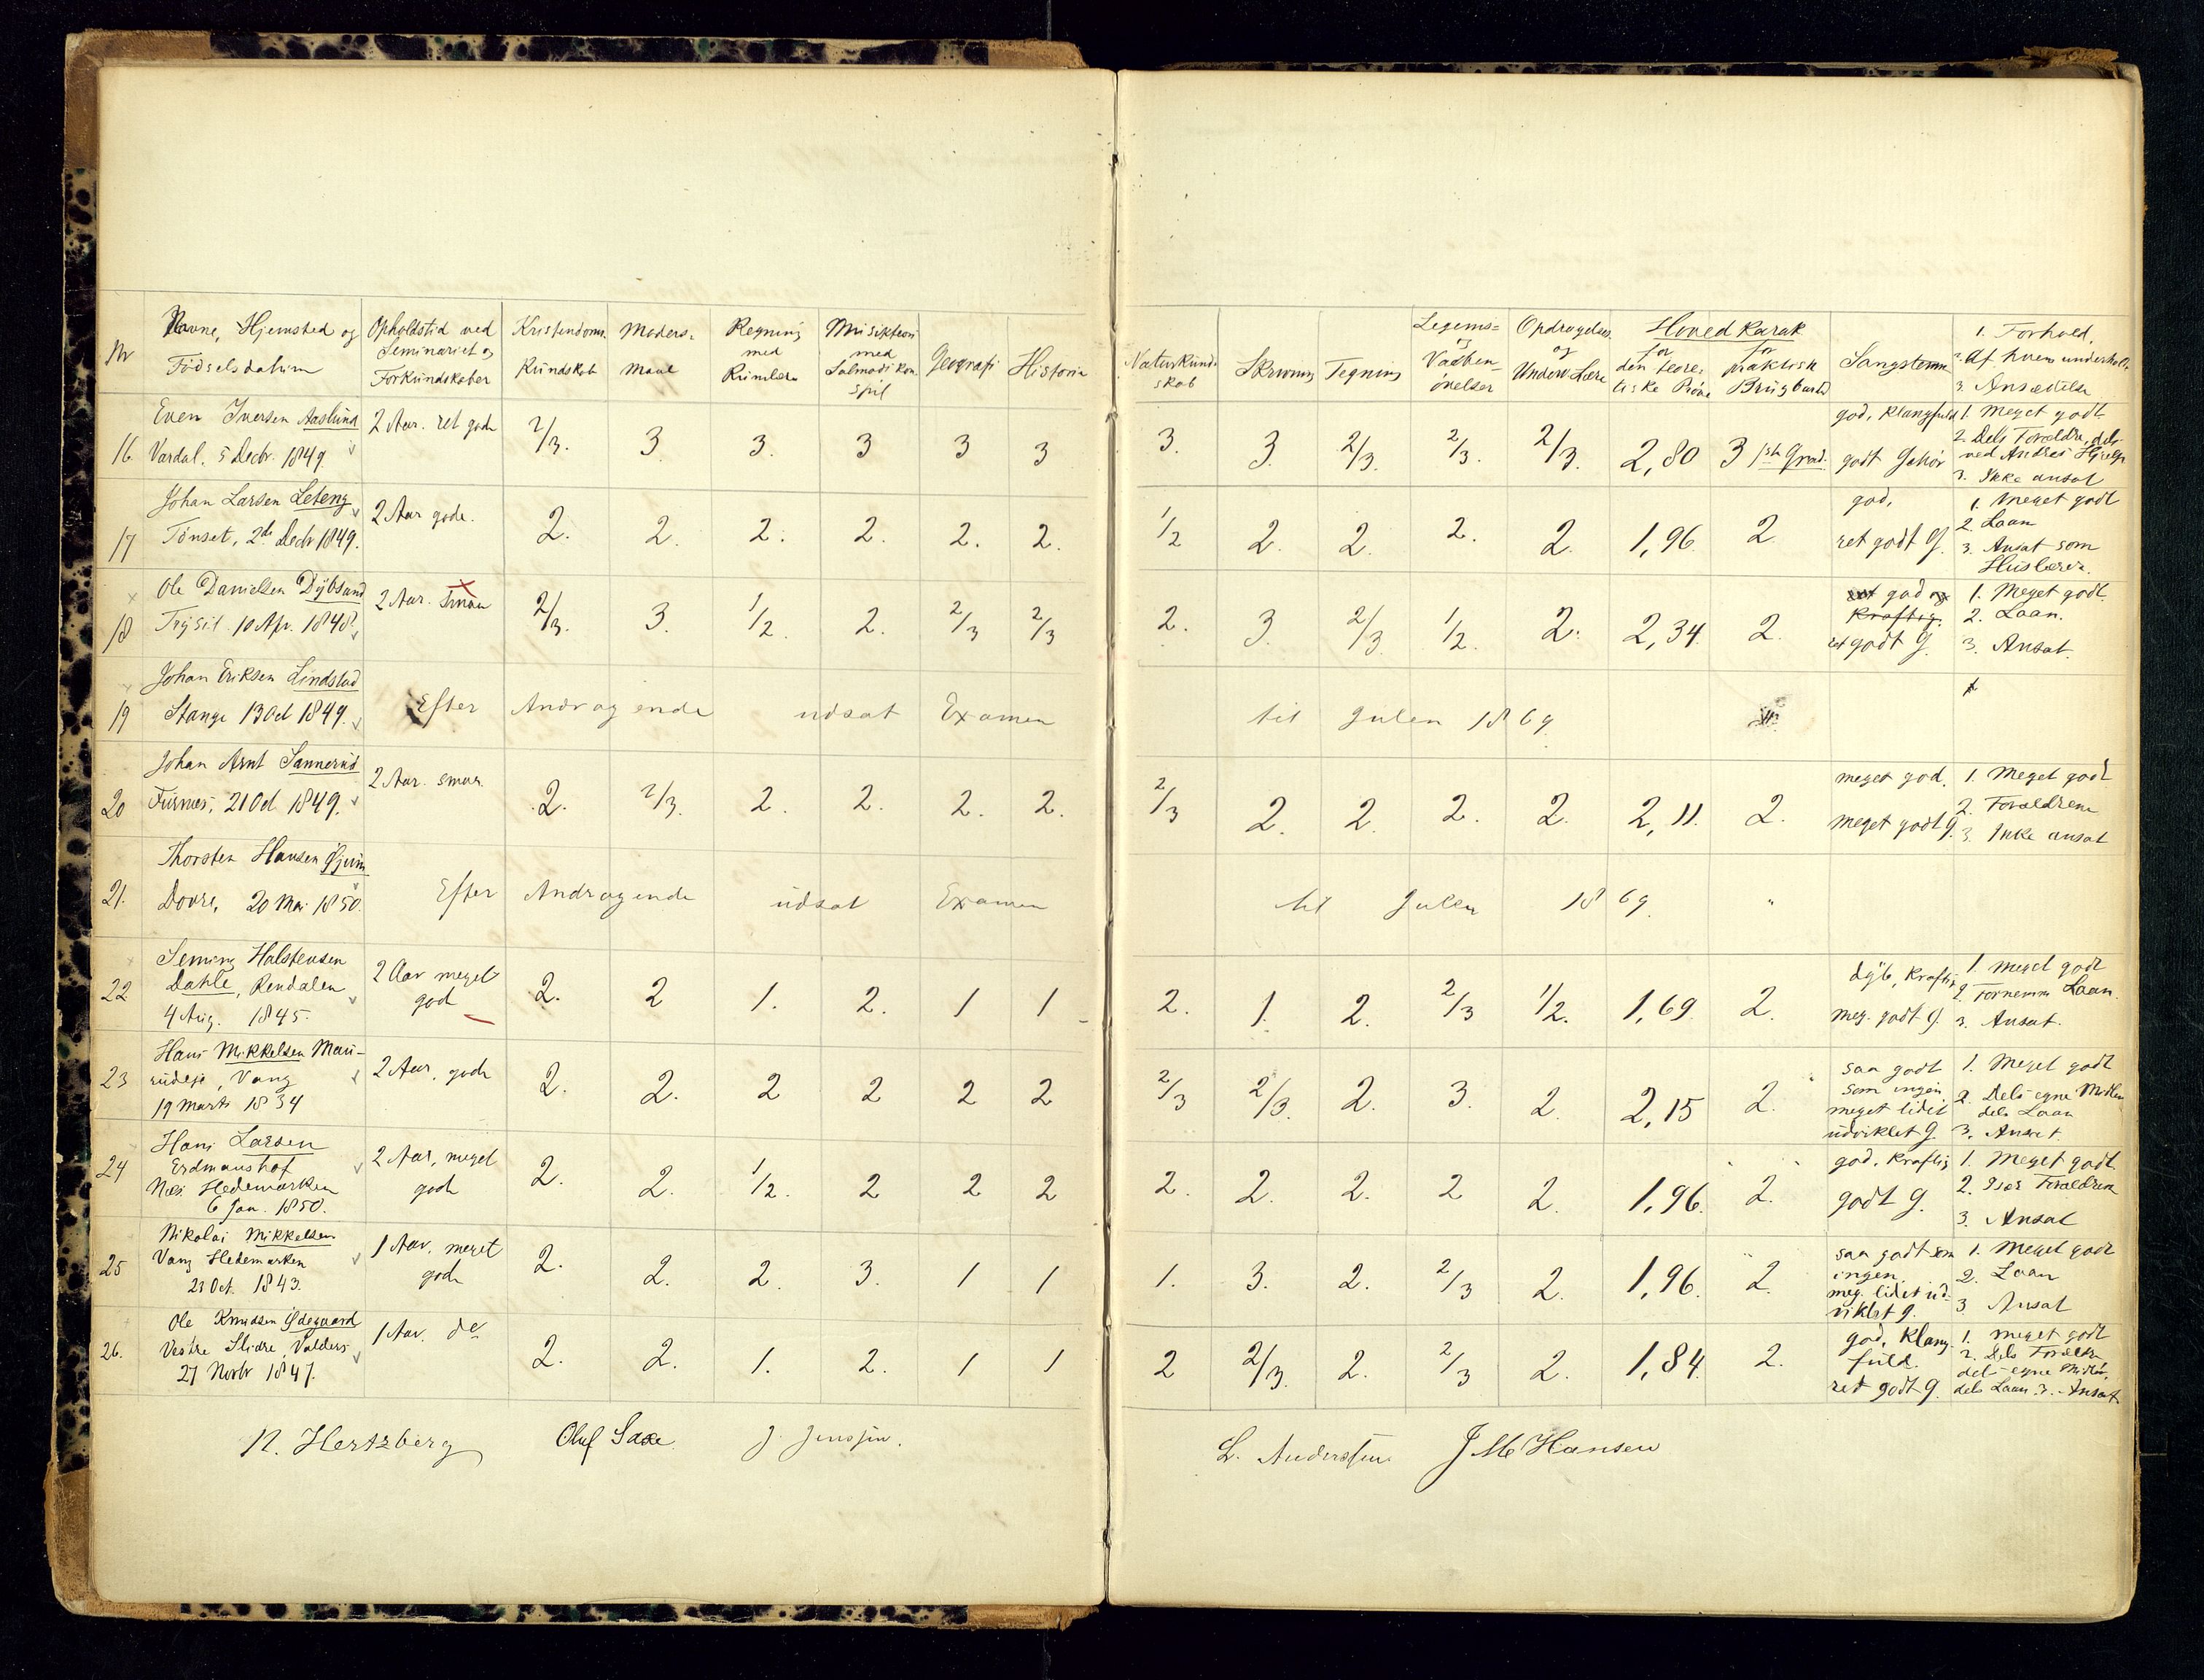 Nr
Navne, Hjemsted og
Födselsdatum
Opholdstid ved
Seminariet og
Forkundskaber
Kristendoms-
Kundskab
Moders-
maal
Regning
med
Rumlære
med
Salmodikon
spil
Geografi
Historie
Naturkund-
skab
Skrivning
Tegning
Legems-
og
Vaaben-
övelser
Opdragelses
og
Underv. Lære
Hoved Karak
for den teore-
tiske Pröve
for praktisk
Brugbarhed
Sangstemme
1. Forhold.
2. Af hvem underholdt
3. Ansættelse
16 Even Iversen Aaslund
Vardal. 5 Decbr. 1849.
2 Aar. ret gode 2/3. 3. 3. 3 3 3 3. 3. 2/3. 2/3. 2/3. 2,80 3 1ste Grad.
god, Klangfuld
godt Gehör
1. Meget godt
2. Dels Forældre, dels
ved Andres Hjælp
3. Ikke ansat
17 Johan Larsen Leteng
Tönset, 2de Decbr 1849.
2 Aar gode. 2. 2. 2. 2. 2. 2. 1/2 2. 2. 2. 2. 1,96 2.
god,
ret godt G.
1. Meget godt
2. Laan
3. Ansat som
Huslærer.
18 Ole Danielsen Dybsand
Trysil 10 Apr. 1848.
2 Aar. smaa 2/3. 3. 1/2. 2. 2/3 2/3 2. 3. 2/3 1/2. 2. 2,34. 2.
ret god og
Kraftig.
ret godt G.
1. Meget godt.
2. Laan.
3. Ansat.
19 Johan Eriksen Lindstad
Stange 13 Oct 1849.
Efter Andragende udsat Examen til Julen 1869
20 Johan Arnt Sannerud
Furnæs, 21 Oct 1849.
2 Aar. smaa. 2. 2/3. 2. 2. 2. 2. 2/3 2. 2. 2. 2. 2,11. 2.
meget god.
meget godt G.
1. Meget godt
2. Forældrene
3. Ikke ansat
21. Thorsten Hansen
Dovre, 20 Mai 1850.
Efter Andragende udsat Examen til Julen 1869.
22 Seming Halstensen
Dahle, Rendalen
4 Aug. 1845.
2 Aar meget
god 2. 2 1. 2. 1 1 2. 1. 2. 2/3 1/2. 1,69 2.
dyb, Kraftig
meg. godt G.
1. Meget godt
2. Fornemm Laan.
3. Ansat.
23 Hans Mikkelsen Mau-
rudeje, Vang
19 Marts 1834
2 Aar, gode 2. 2. 2 2 2 2 2/3 2/3. 2. 3. 2. 2,15 2.
saa godt
som ingen,
meget lidet
udviklet G.
1. Meget godt
2. Dels egne Midler
dels Laan
3. Ansat.
24 Hans Larsen
Erdmanshof
Næs Hedemarken
6 Jan. 1850.
2 Aar, meget
gode 2. 2. 1/2. 2 2 2 2. 2. 2. 2 2. 1,96. 2.
god, Kraftig
godt G.
1. Meget godt
2. Især Forældrene
3. Ansat
25 Nikolai Mikkelsen
Vang Hedemarken
23 Oct. 1843.
1 Aar, meget
gode 2. 2. 2. 3. 1 1 1. 3. 2. 2/3 2. 1,96. 2.
saa godt som
ingen,
meg. lidet ud-
viklet G.
1. Meget godt
2. Laan
3. Ansat
26. Ole Knudsen Ödegaard
Vestre Slidre, Valders
27 Novbr 1847.
1 Aar. do 2. 2. 1. 2. 1 1 2 2/3. 2. 2/3 2. 1,84. 2.
god, Klang-
fuld.
ret godt G.
1. Meget godt
2. Dels Forældre
dels egne Midler,
dels Laan. 3. Ansat
N. Hertzberg Oluf Saxe J. Jenssen. L. Anderssen J M Hansen